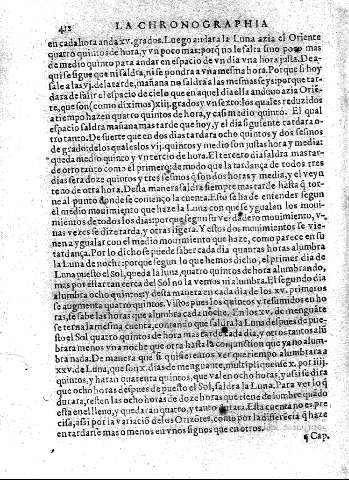 412 LA CHRONOGRAPHIA
en cada hora anda xv. grados. Luego andara la Luna azia el Oriente
quatro quintos de hora, y vn poco mas: porq̃ no le falta sino poco mas
de medio quinto para andar en espacio de vn dia vna hora justa. De a-
qui se sigue que ni saldra, ni se pondra a vna mesma hora. Porque si hoy
sale a las vj. de la tarde, mañana no saldra a las mesmas seys: porque tar-
dara de salir el espacio de cielo que en aquel dia ella anduuo azia Oriẽ-
te, que son (como diximos) xiij. grados y vn sexto: los quales reduzidos
a tiempo hazen quatro quintos de hora, y casi medio quinto. El qual
espacio saldra mañana mas tarde que hoy, y el dia siguiente tardara o-
tro tanto. De suerte que en dos dias tardara ocho quintos y dos sesmos
de grado: de los quales los vij. quintos y medio son justas hora y media:
queda medio quinto y vn tercio de hora. El tercero dia saldra mas tar-
de otro tanto como el primero: de modo que la tardança de todos tres
dias sera doze quintos y tres sesmos q̃ son dos horas y media, y el veyn
teno de otra hora. Desta manera saldra siempre mas tarde hasta q̃ tor-
ne al punto donde se començo la cuenta. Esto se ha de entender segun
el medio mouimiento que haze la Luna con que se ygualan los moui-
mientos de todos los dias: porque segun su verdadero mouimiento, v-
nas vezes se dize tarda, y otras ligera. Y estos dos mouimientos se vie-
nen a ygualar con el medio mouimiento que haze, como parece en su
tardança. Por lo dicho se puede saber cada dia quantas horas alumbra
la Luna de noche: porque segun lo que hemos dicho, el primer dia de
Luna puesto el Sol, queda la luna, quatro quintos de hora alumbrando,
mas por estar tan cerca del Sol no la vemos ni alumbra. El segundo dia
alumbra ocho quintos: y desta manera en cada dia de los xv. primeros
se augmenta quatro quintos. Vistos pues los quintos y resumidos en ho
ras, se sabe las horas que alumbra cada noche. En los xv. de menguãte
se terna la mesma cuenta, contando que saldra la Luna despues de pue-
sto el Sol quatro quintos de hora mas tarde cada dia, y otros tantos assi
brara menos vna noche que otra hasta la conjunction que ya no alum-
bra nada. De manera que si quisieremos ver que tiempo alumbrara a
xxv. de Luna, que son x. dias de menguante, multipliquense x. por iiij.
quintos, y haran quarenta quintos, que valen ocho horas, y assi se dira
que ocho horas despues de puesto el Sol, saldra la Luna. Para ver lo q̃
durara, resten las ocho horas de doze horas que tiene de lumbre quãdo
esta en el lleno, y quedaran quatro, y tanto durara. Esta cuenta no es pre
cisa, assi por la variaciõ de los Orizõtes, como por la differẽcia q̃ haze
en tardarse mas o menos en vnos signos que en otros.
¶ Cap.